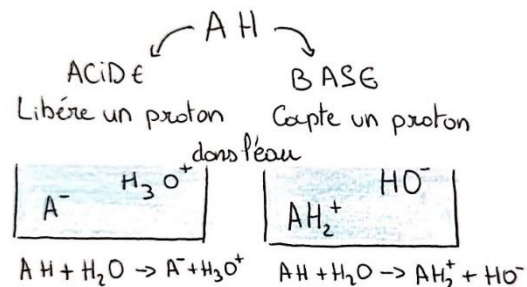 AH
ACIDE
Libère un proton
BASE
Capte un proton
dans l'eau
A⁻ H₃O⁺
HO⁻
AH₂⁺
AH + H₂O → A⁻ + H₃O⁺
AH + H₂O → AH₂⁺ + HO⁻